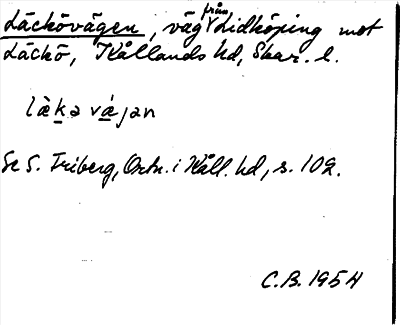 Läckövägen, väg från Lidköping mot
Läckö, Kållands hd, Skar. l.
là̱ka vá̱jan
Se S. Friberg, Ortn. i Kåll. hd, s. 102.
C.B. 1954